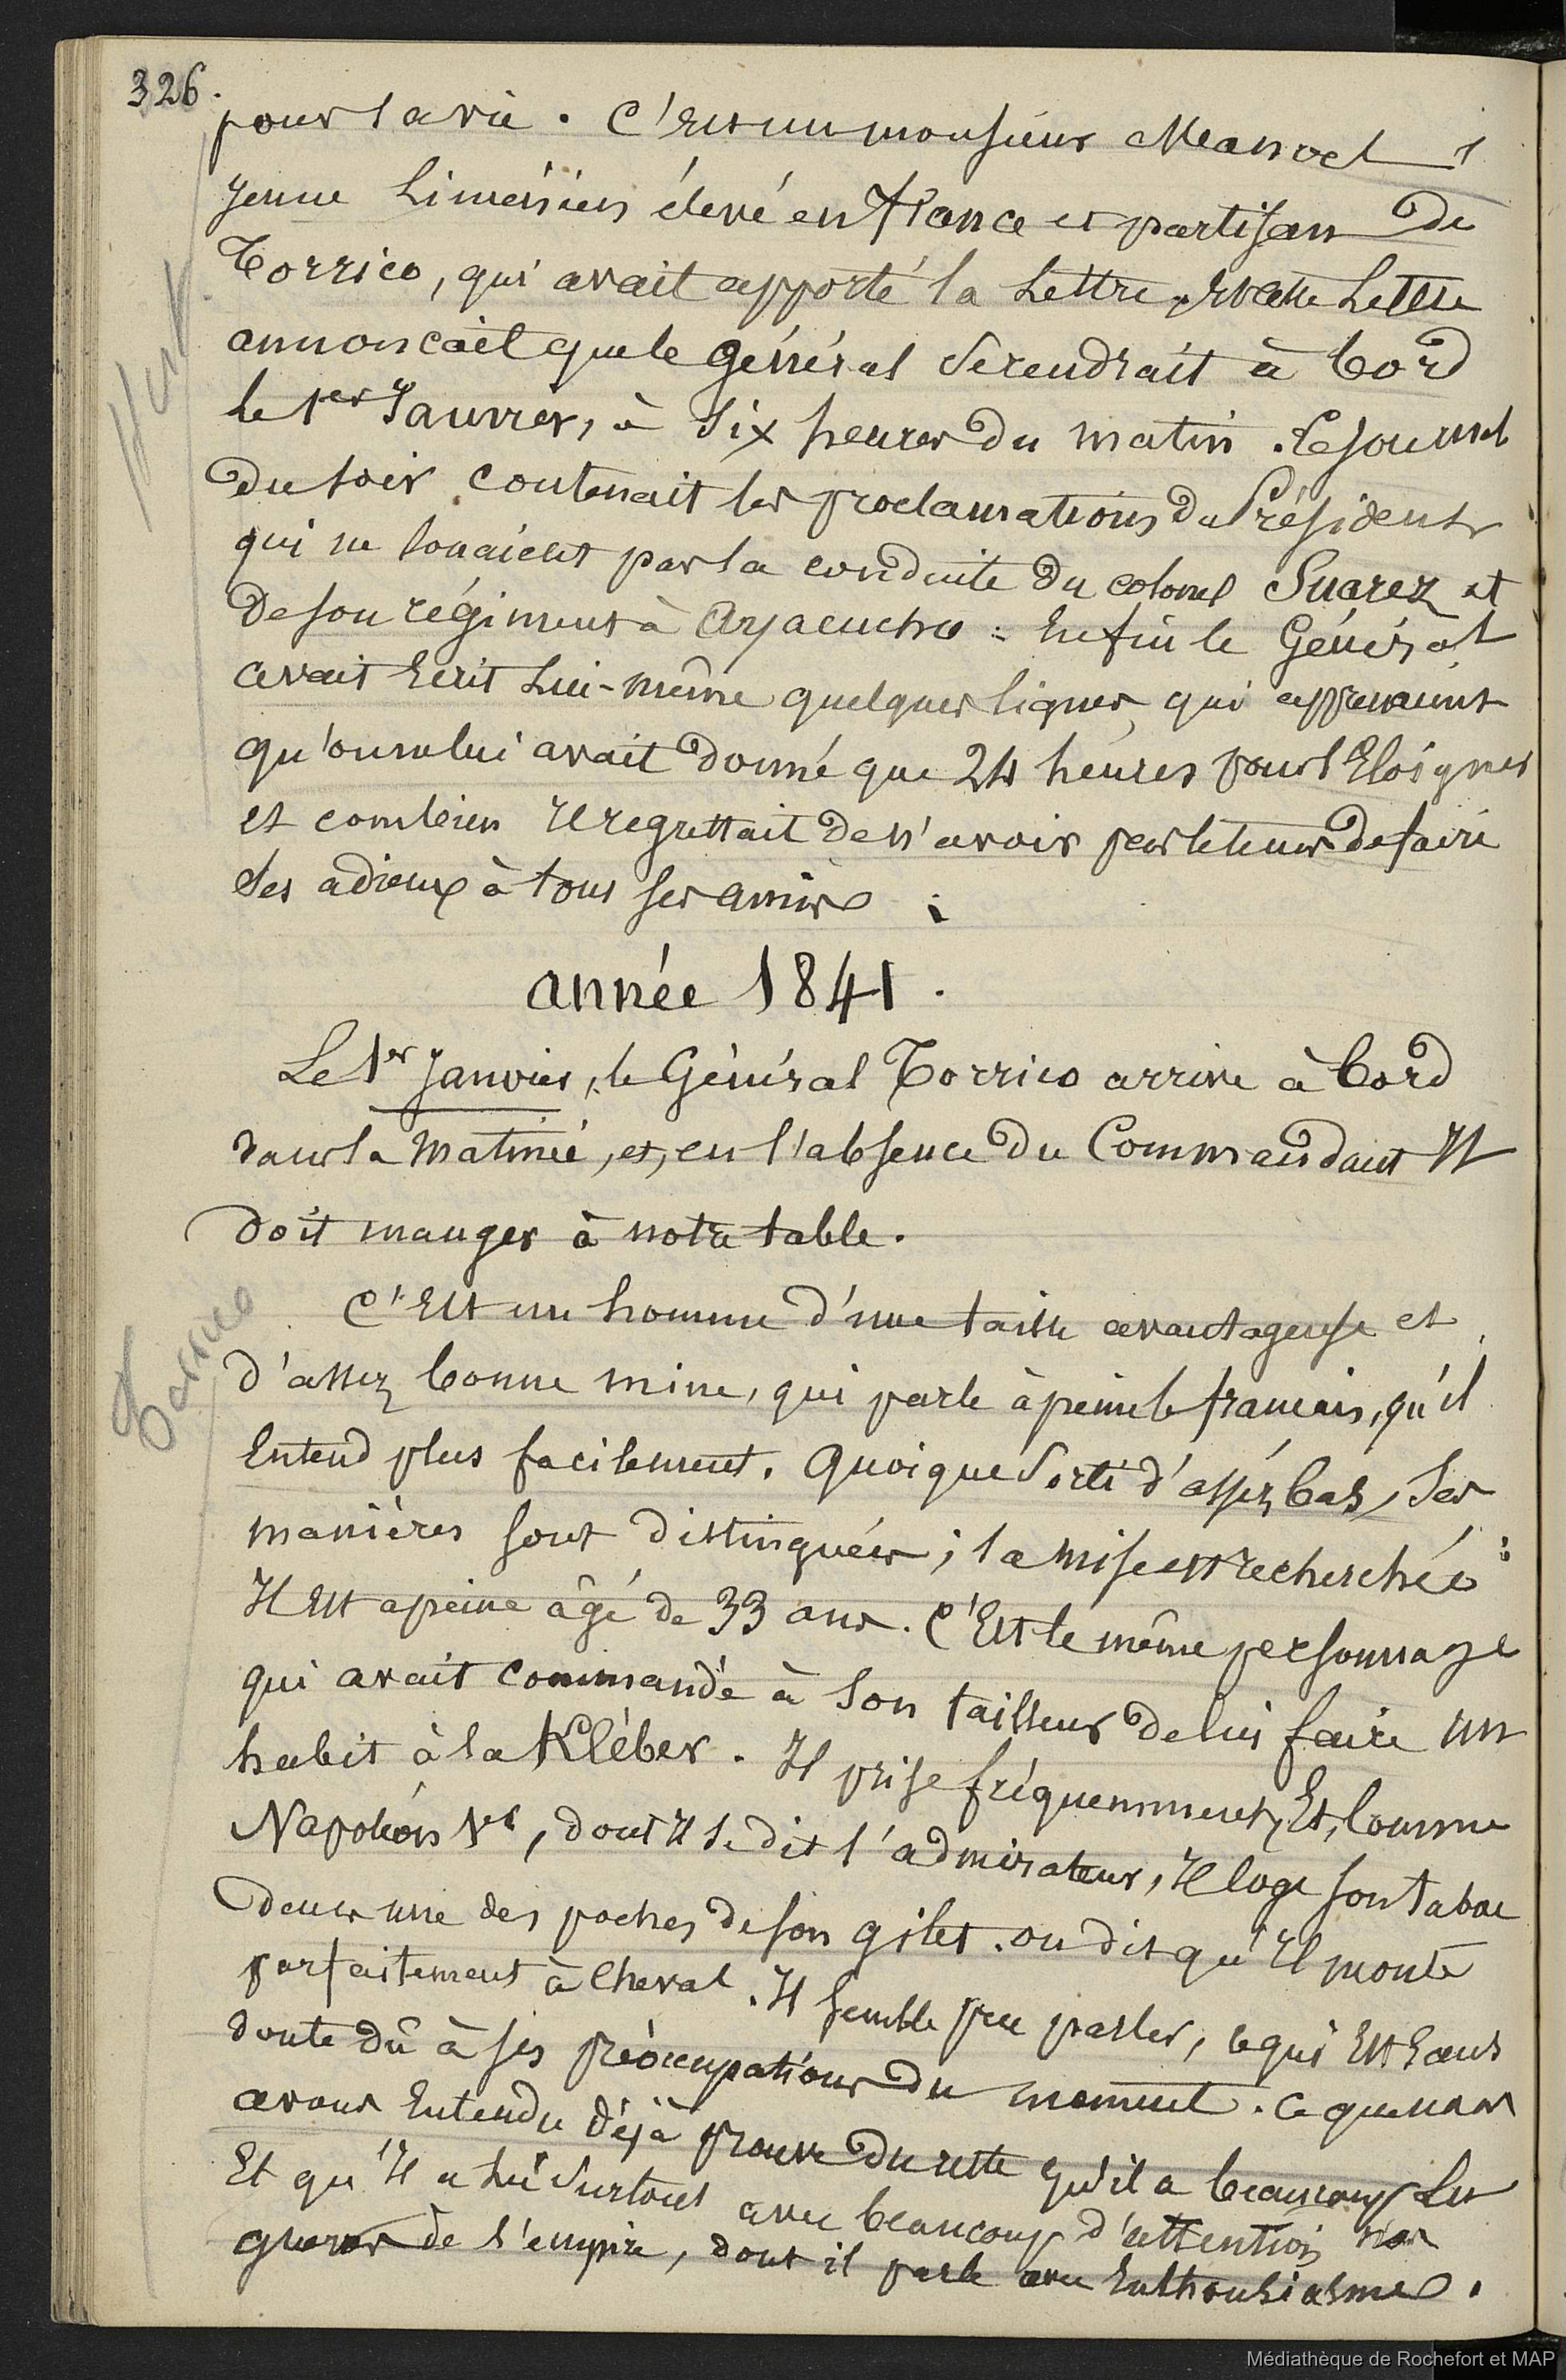 326.
pour la vie. C'est un monsieur Manuel
jeune Liménien élevé en France et partisan de
Torrico, qui avait apporté la Lettre. Cette Lettre
annonçait que le Général se rendrait à bord
le 1er Janvier, à six heures du matin. Le journal
du soir contenait les proclamations du Président
qui ne louaient pas la conduite du colonel Suarez et
de son régiment à Ayacucho : Enfin le Général
avait Ecrit Lui-même quelques lignes, qui apprenaient
qu'on ne lui avait donné que 24 heures pour s'Eloigner
et combien Il regrettait de n'avoir pas le tems de faire
ses adieux à tous ses amis
année 1841.
Le 1er Janvier, le Général Torrico arrive à bord
dans la matinée, et, en l'absence du Commandant Il
doit manger à notre table.
Torrico
C'Est un homme d'une taille avantageuse et
d'assez bonne mine, qui parle à peine le français, qu'il
Entend plus facilement. Quoique Sorti d'assez bas, Ses
manières sont distinguées ; sa mise est recherchée :
Il Est a peine âgé de 33 ans. C'Est le même personnage
qui avait commandé à Son tailleur de lui faire un
habit à la Kléber. Il prise fréquemment, Et, Comme
Napoléon 1er, dont Il se dit l'admirateur, Il loge son tabac
dans une des poches de son gilet. on dit qu'Il monte
parfaitement à Cheval. Il semble peu parler, ce qui Est Sans
doute dû à ses préoccupations du moment. Ce que nous
avons Entendu déjà prouve du reste qu'il a beaucoup Lu
Et qu'Il a Lu Surtout avec beaucoup d'attention nos
guerres de l'empire, dont il parle avec Enthousiasme.
Médiathèque de Rochefort et MAP